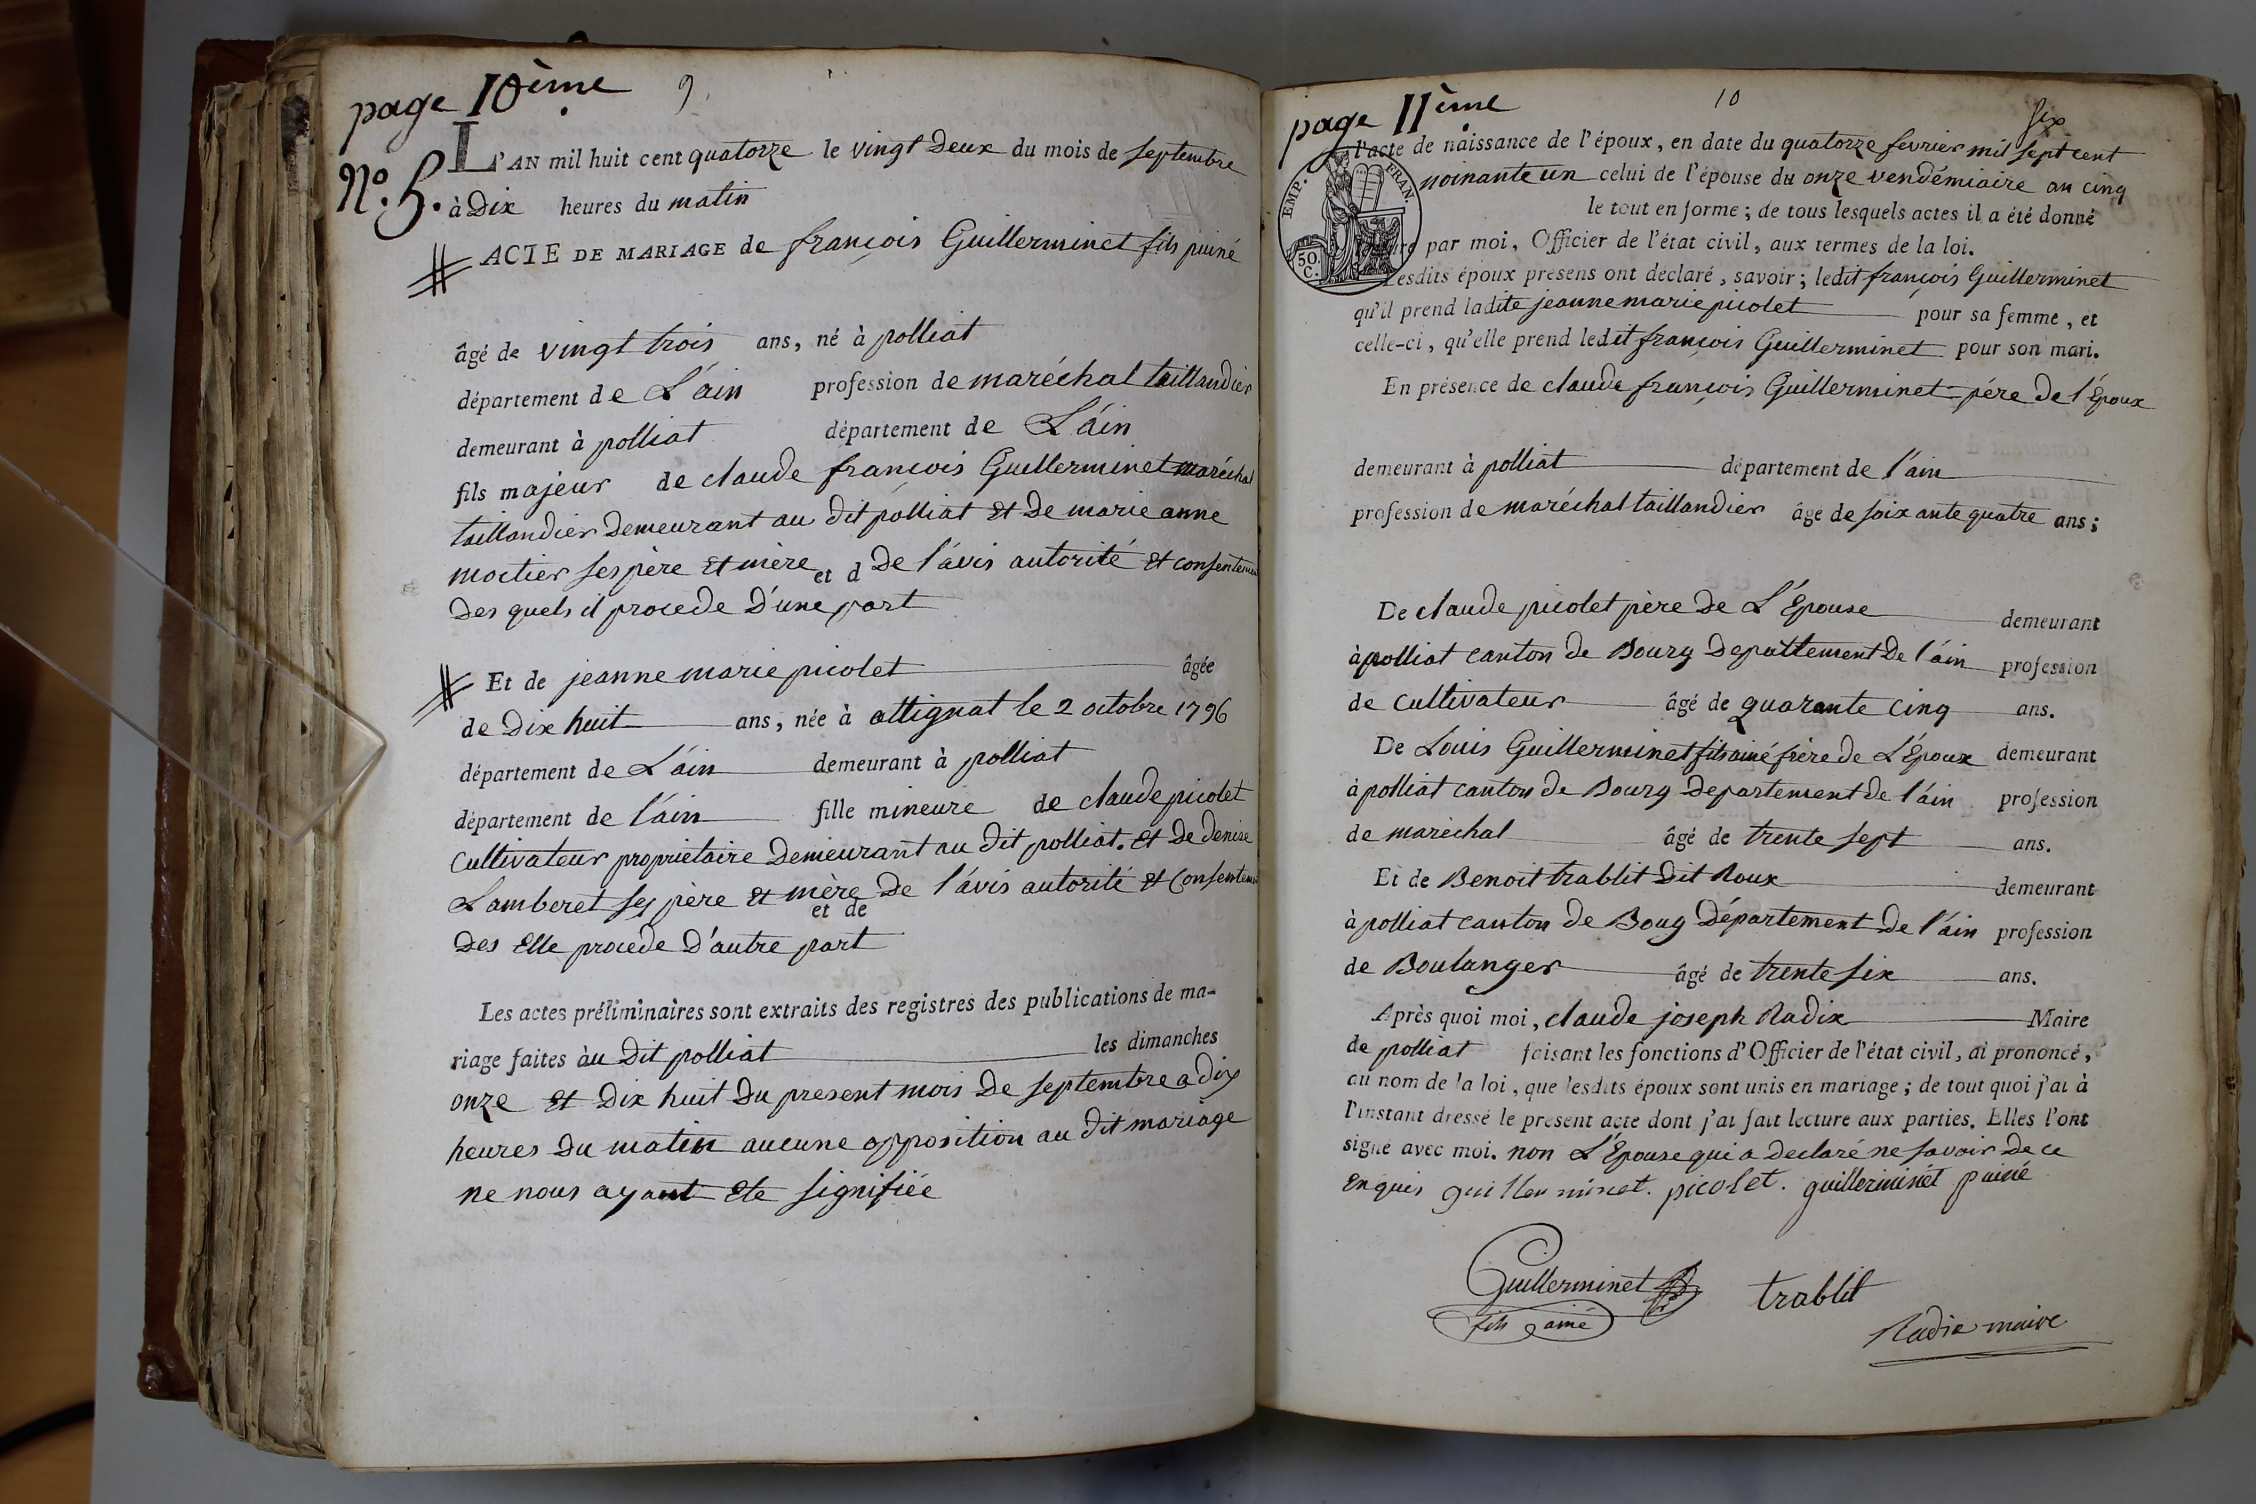 page 10ème 9.
N.º 5. L'AN mil huit cent quatorze le vingt deux du mois de septembre
à Dix heures du matin
ACTE DE MARIAGE de françois Guillerminet fils puiné
âgé de vingt trois ans, né à polliat
département de L'ain profession de maréchal taillandier
demeurant à polliat département de L'ain
fils majeur de claude françois Guillerminet maréchal
taillandier demeurant au dit polliat et de marie anne
moitier ses père et mère et d de l'avis autorité et consentement
des quels il procede d'une part
Et de jeanne marie picolet âgée
de Dix huit ans, née à attignat le 2 octobre 1796
département de L'ain demeurant à polliat
département de l'ain fille mineure de claude picolet
cultivateur propriétaire demeurant au dit polliat. et de denise
Lamberet ses père et mère et de De l'avis autorité et consentem
des Elle procede d'autre part
Les actes préliminaires sont extraits des registres des publications de ma-
riage faites àu dit polliat les dimanches
onze et dix huit du present mois de septembre a dix
heures du matin aucune opposition au dit mariage
ne nous ayant ete signifiée
page 11ème 10 six
l'acte de naissance de l'époux, en date du quatorze fevrier mil sept cent
noinante un celui de l'épouse du onze vendémiaire an cinq
EMP. FRAN.
50. C.
le tout en forme ; de tous lesquels actes il a été donné
par moi, Officier de l'état civil, aux termes de la loi.
Lesdits époux présens ont déclaré, savoir ; ledit françois Guillerminet
qu'il prend ladite jeanne marie picolet pour sa femme, et
celle-ci, qu'elle prend ledit françois Guillerminet pour son mari.
En présence de claude françois Guillerminet père de l'Epoux
demeurant à polliat département de l'ain
profession de maréchal taillandier âgé de soixante quatre ans ;
De claude picolet père de L'Epouse demeurant
à polliat canton de Bourg Departtement de l'ain profession
de cultivateur âgé de quarante cinq ans.
De Louis Guillerminet fils ainé frère de L'Epoux demeurant
à polliat canton de Bourg departement de l'ain profession
de maréchal âgé de trente sept ans.
Et de Benoit trablit dit Roux demeurant
à polliat canton de Boug département de l'ain profession
de Boulanger âgé de trente six ans.
Après quoi moi, claude joseph Radix Maire
de polliat faisant les fonctions d'Officier de l'état civil, ai prononcé,
au nom de la loi, que lesdits époux sont unis en mariage ; de tout quoi j'ai à
l'instant dressé le présent acte dont j'ai fait lecture aux parties. Elles l'ont
signé avec moi. non L'Epouse qui a declaré ne savoir de ce
enquis guillerminet. picolet. guillerminet puiné
Guillerminet trablit
fils ainé
Radix maire